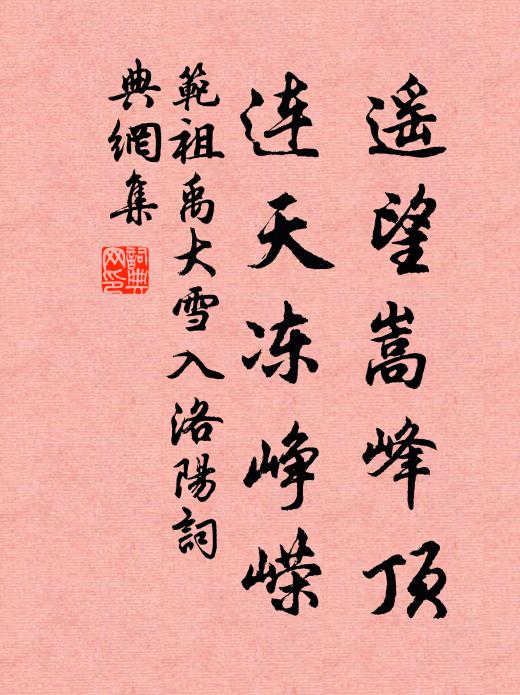 遥望嵩峰顶
连天冻峥嵘
範祖禹大雪入洛陽詞
典網集
詞典网印